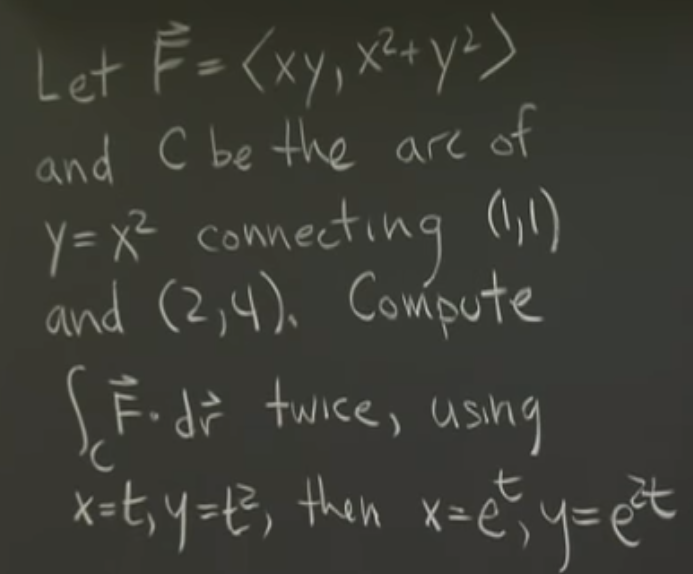 Let F⃗ = ⟨xy, x²+y²⟩
and C be the arc of
y=x² connecting (1,1)
and (2,4). Compute
∫_C F⃗·dr⃗ twice, using
x=t, y=t², then x=eᵗ, y=e²ᵗ